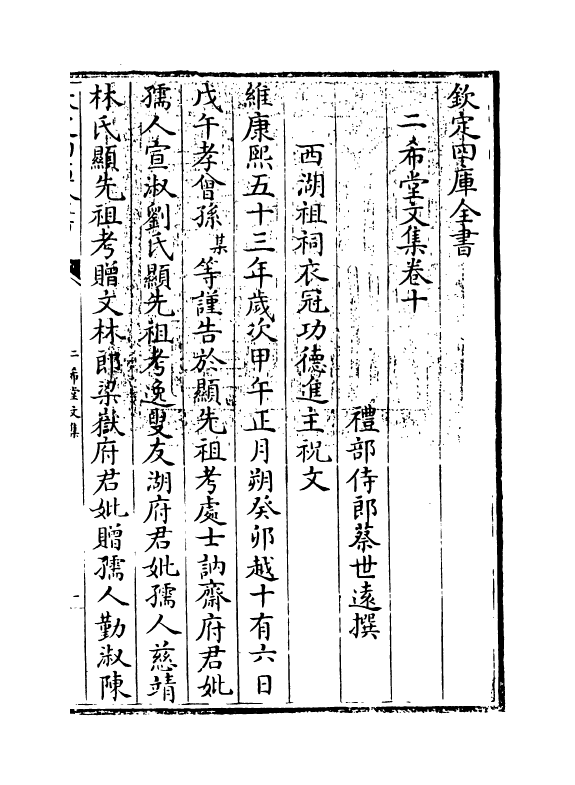 欽定四庫全書
二希堂文集卷十
禮部侍郎蔡世遠撰
西湖祖祠衣冠功德進主祝文
維康熙五十三年歲次甲午正月朔癸卯越十有六日
戊午孝曾孫某等謹告於顯先祖考處士訥齋府君妣
孺人宣淑劉氏顯先祖考逸叟友湖府君妣孺人慈靖
林氏顯先祖考贈文林郎梁嶽府君妣贈孺人勤淑陳
二希堂文集
一